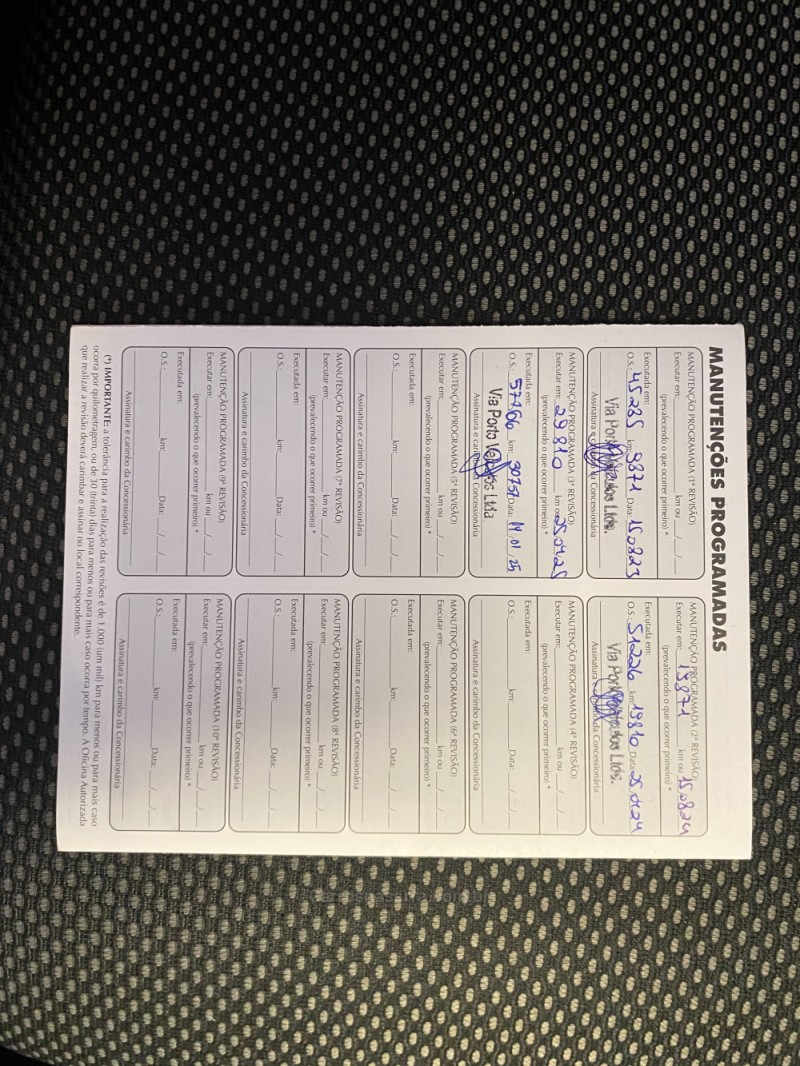 MANUTENÇÕES PROGRAMADAS
MANUTENÇÃO PROGRAMADA (1ª REVISÃO)
Executar em: km ou / /
(prevalecendo o que ocorrer primeiro) *
Executada em:
O.S.: 45235 km: 9871 Data: 15 08 23
Via Porto Veículos Ltda.
Assinatura e carimbo da Concessionária
MANUTENÇÃO PROGRAMADA (2ª REVISÃO)
Executar em: 19871 km ou 15 08 24
(prevalecendo o que ocorrer primeiro) *
Executada em:
O.S.: 51226 km: 19810 Data: 25 01 24
Via Porto Veículos Ltda.
Assinatura e carimbo da Concessionária
MANUTENÇÃO PROGRAMADA (3ª REVISÃO)
Executar em: 29810 km ou 25 01 25
(prevalecendo o que ocorrer primeiro) *
Executada em:
O.S.: 57766 km: Data: 01 25
Via Porto Veículos Ltda
Assinatura e carimbo da Concessionária
MANUTENÇÃO PROGRAMADA (4ª REVISÃO)
Executar em: km ou / /
(prevalecendo o que ocorrer primeiro) *
Executada em:
O.S.: km: Data: / /
Assinatura e carimbo da Concessionária
MANUTENÇÃO PROGRAMADA (5ª REVISÃO)
Executar em: km ou / /
(prevalecendo o que ocorrer primeiro) *
Executada em:
O.S.: km: Data: / /
Assinatura e carimbo da Concessionária
MANUTENÇÃO PROGRAMADA (6ª REVISÃO)
Executar em: km ou / /
(prevalecendo o que ocorrer primeiro) *
Executada em:
O.S.: km: Data: / /
Assinatura e carimbo da Concessionária
MANUTENÇÃO PROGRAMADA (7ª REVISÃO)
Executar em: km ou / /
(prevalecendo o que ocorrer primeiro) *
Executada em:
O.S.: km: Data: / /
Assinatura e carimbo da Concessionária
MANUTENÇÃO PROGRAMADA (8ª REVISÃO)
Executar em: km ou / /
(prevalecendo o que ocorrer primeiro) *
Executada em:
O.S.: km: Data: / /
Assinatura e carimbo da Concessionária
MANUTENÇÃO PROGRAMADA (9ª REVISÃO)
Executar em: km ou / /
(prevalecendo o que ocorrer primeiro) *
Executada em:
O.S.: km: Data: / /
Assinatura e carimbo da Concessionária
MANUTENÇÃO PROGRAMADA (10ª REVISÃO)
Executar em: km ou / /
(prevalecendo o que ocorrer primeiro) *
Executada em:
O.S.: km: Data: / /
Assinatura e carimbo da Concessionária
(*) IMPORTANTE: a tolerância para a realização das revisões é de 1.000 (um mil) km para menos ou para mais caso
ocorra por quilometragem, ou de 30 (trinta) dias para menos ou para mais caso ocorra por tempo. A Oficina Autorizada
que realizar a revisão deverá carimbar e assinar no local correspondente.